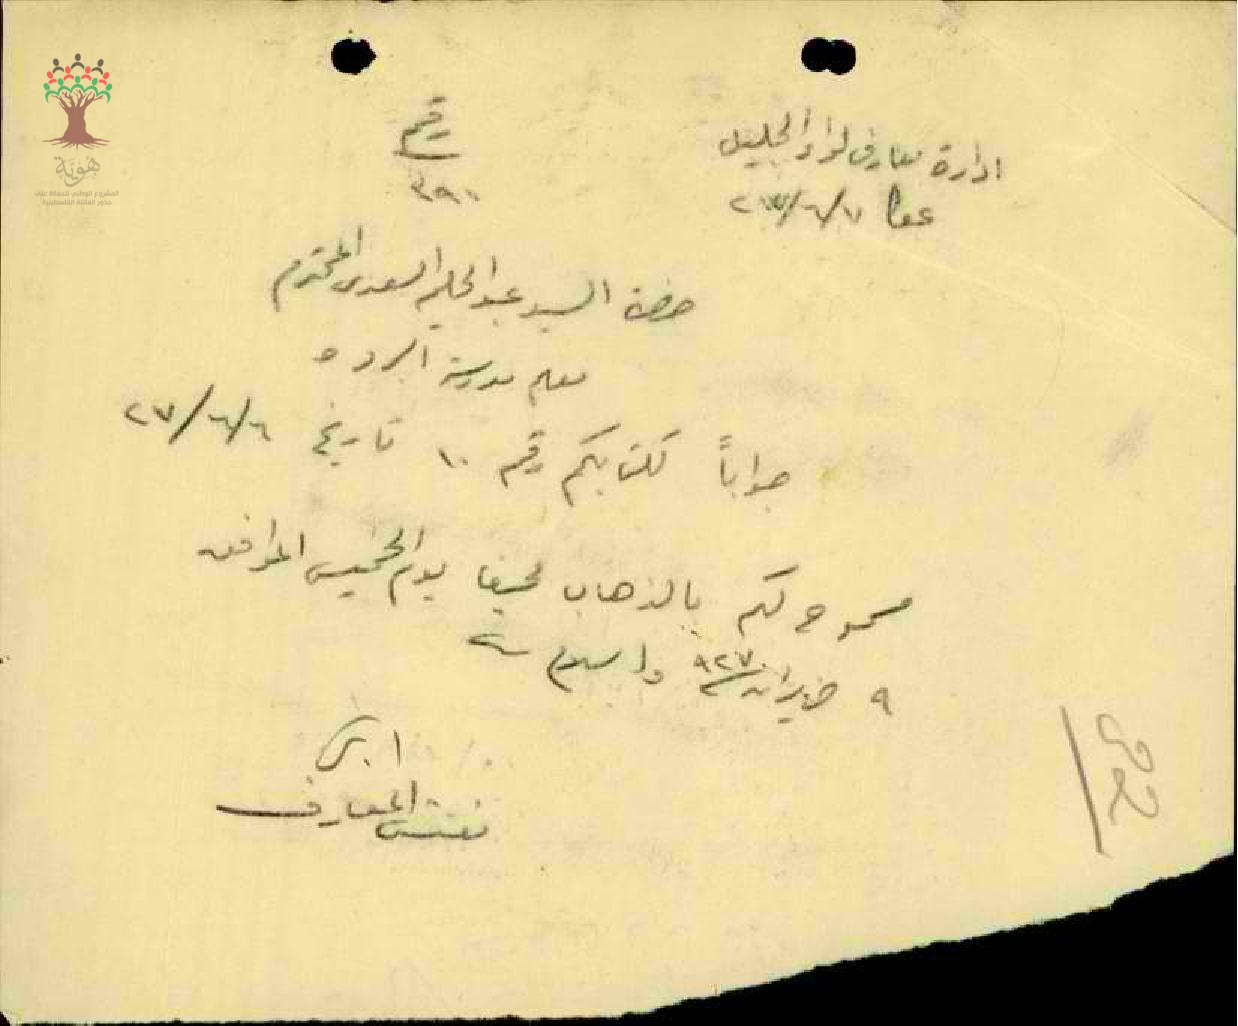 ادارة معارف لواء الجليل
عكا ٧/٦/٢٧
رقم
٣٩٠
حضرة السيد عبد الحليم السعدي المحترم
معلم مدرسة البروه
جواباً لكتابكم رقم ١٠ تاريخ ٦/٦/٢٧
مسموح لكم بالذهاب لحيفا يوم الخميس الموافق
٩ حزيران سنة ٩٢٧ والسلام
مفتش المعارف
هوية
المشروع الوطني للحفاظ على
جذور العائلة الفلسطينية